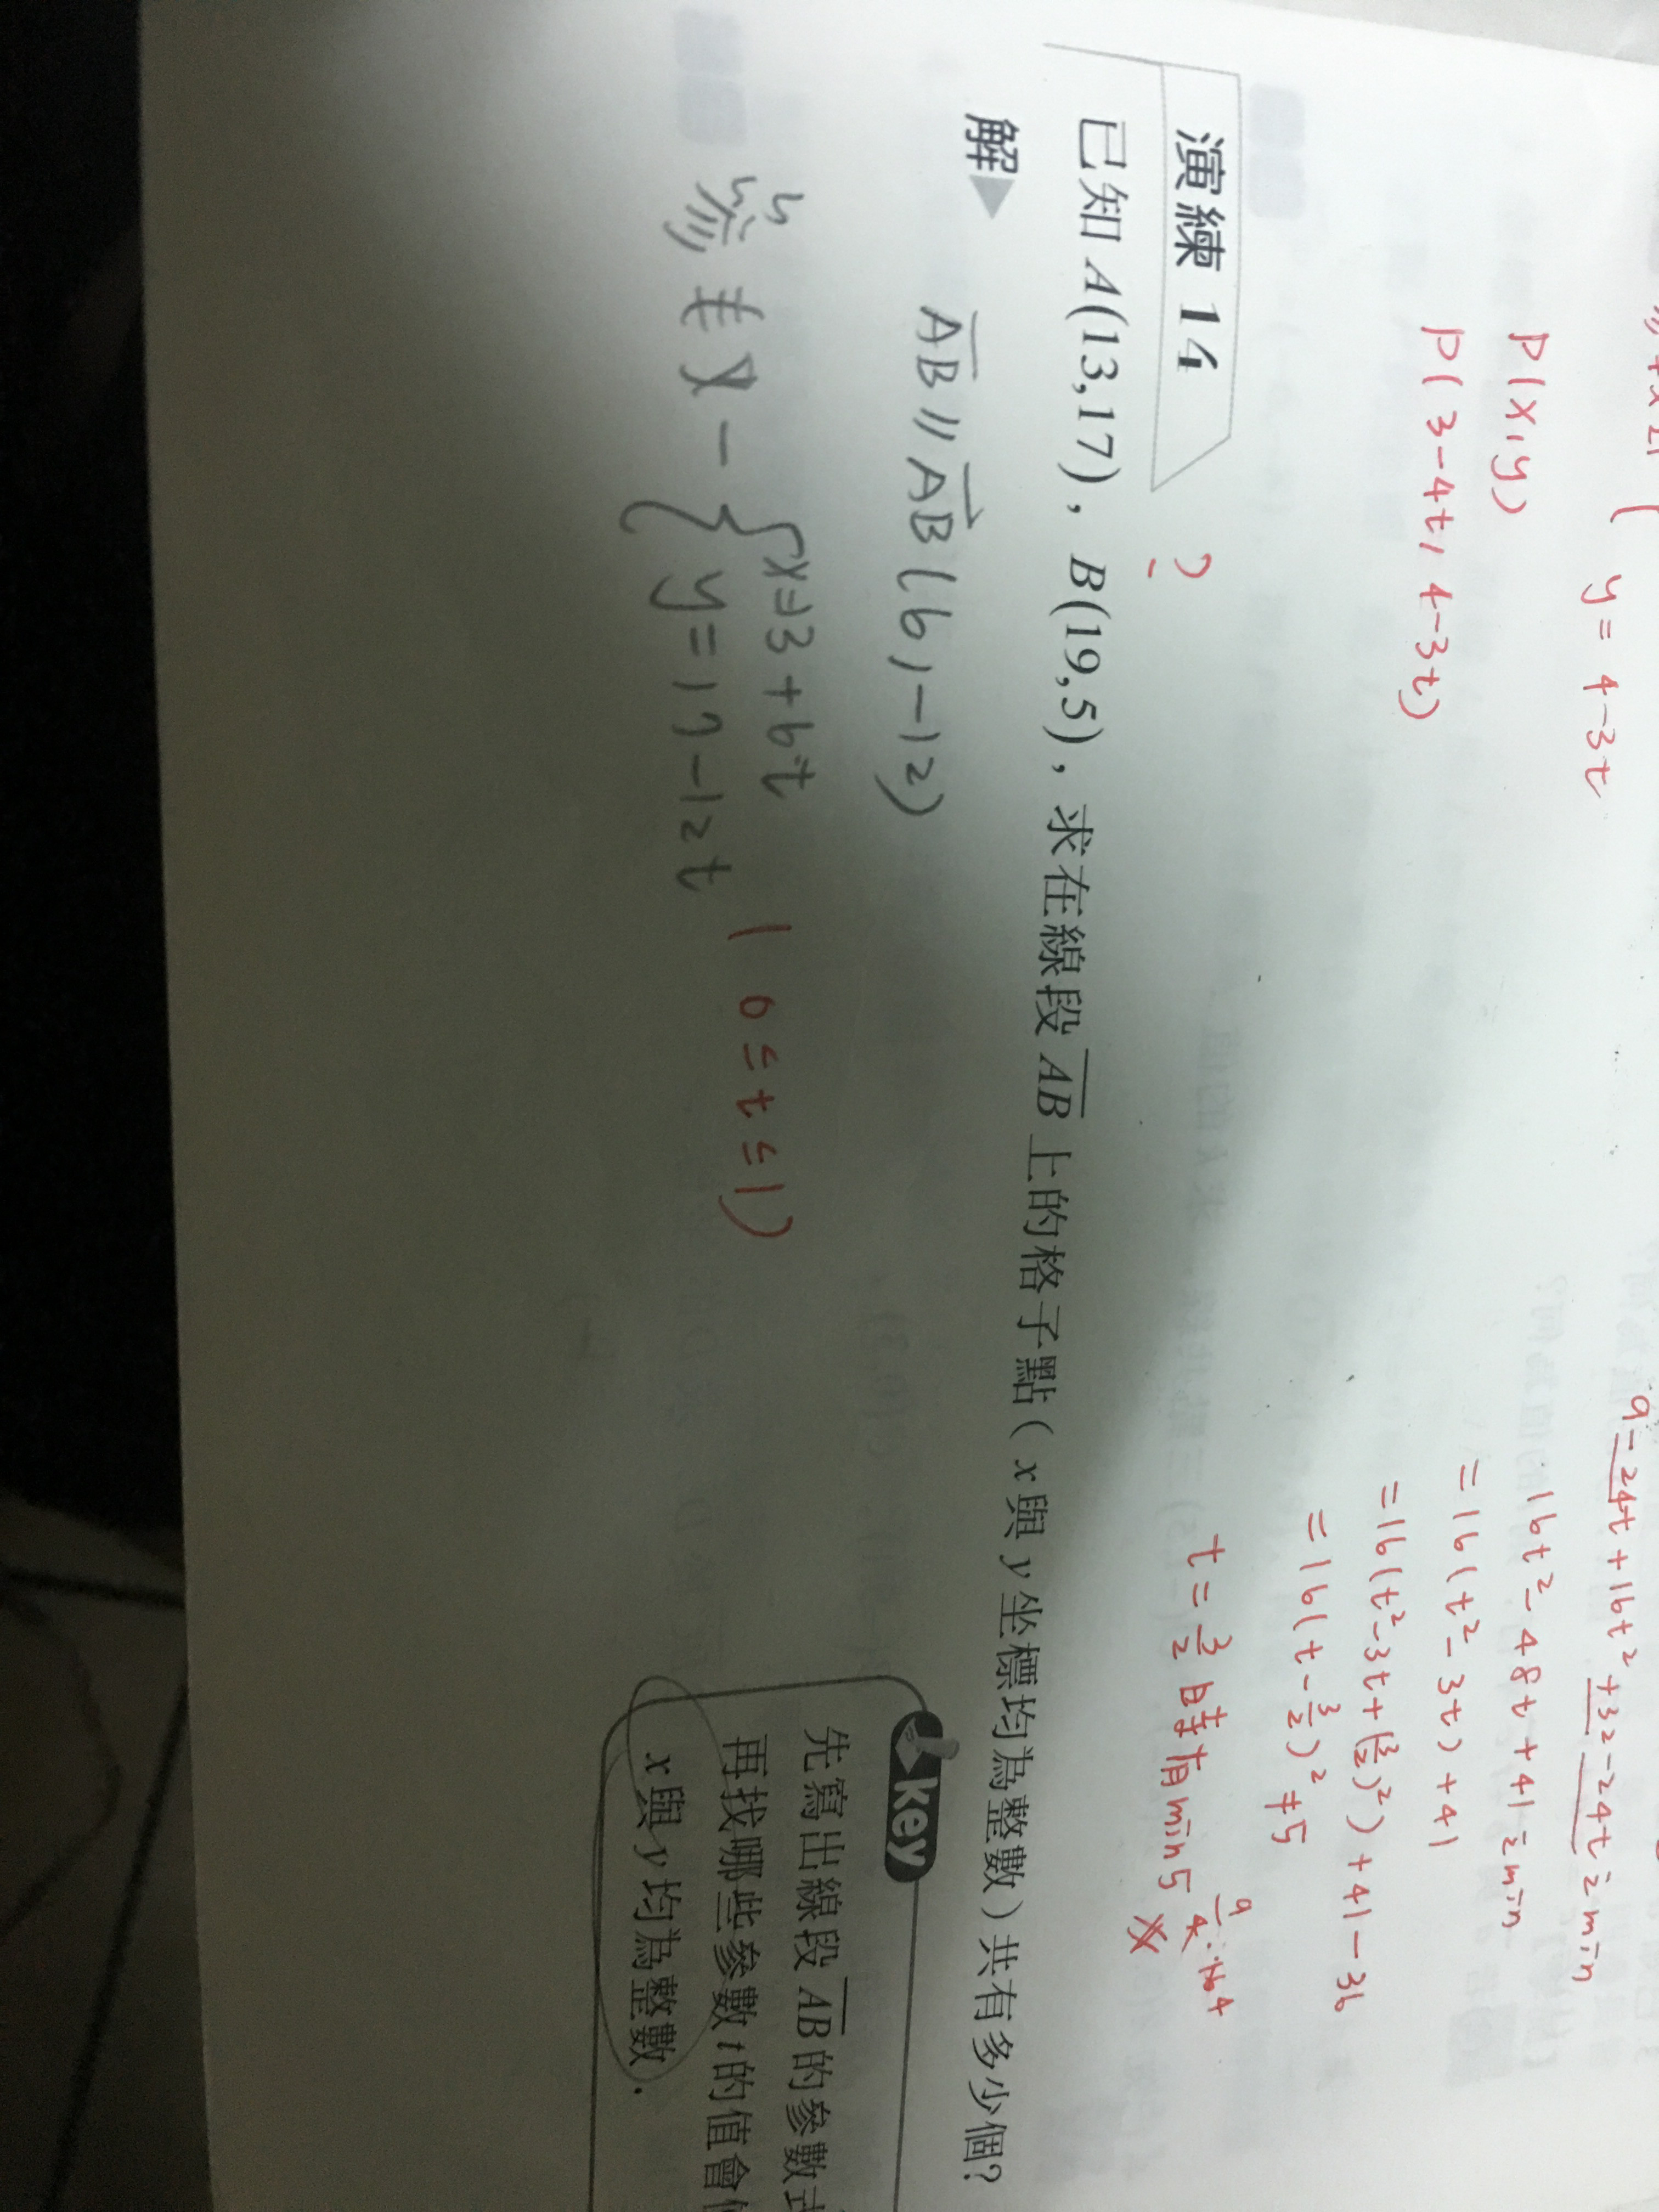 y = 4-3t
P(x,y)
P(3-4t, 4-3t)
9-24t+16t²+32-24t = min
16t²-48t+41 = min
=16(t²-3t)+41
=16(t²-3t+(3/2)²)+41-36
=16(t-3/2)²+5
t=3/2 時有min5
演練 14
?
已知 A(13,17), B(19,5), 求在線段 AB 上的格子點(x與y坐標均為整數)共有多少個?
解▶
AB // AB (6,-12)
{x=13+6t
y=17-12t
(0≤t≤1)
key
先寫出線段 AB 的參數式
再找哪些參數 t 的值會
x與y均為整數.